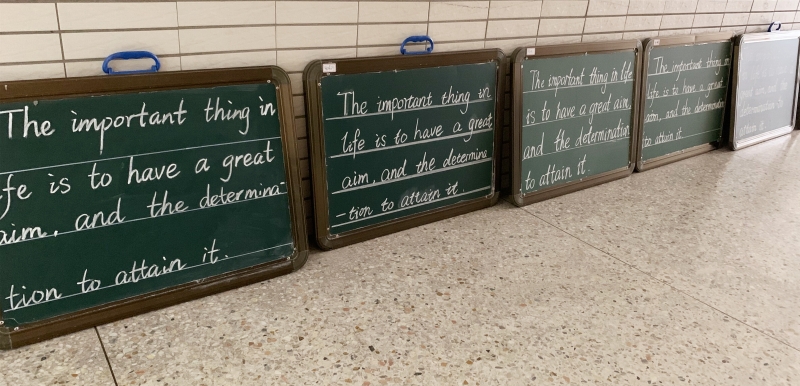 The important thing in
fe is to have a great
aim, and the determina-
tion to attain it.
The important thing in
life is to have a great
aim, and the determina
-tion to attain it.
The important thing in life
is to have a great aim,
and the determination
to attain it
The important thing in
life is to have a great
aim, and the determination
to attain it